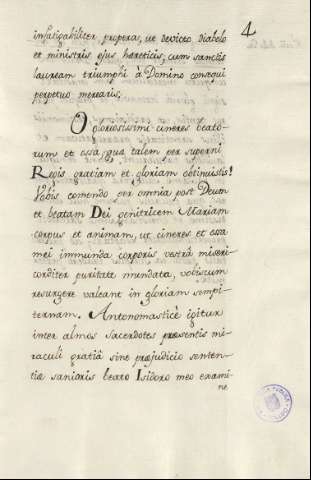 4
infatigabiliter properas, ut devicto diabolo
et ministris ejus hereticis, cum sanctis
lauream triumphi à Domino consequi
perpetuo merearis.
O gloriosissimi cineres beato-
rum et ossa, qua talem per superni
Regis gratiam et gloriam obtinuistis!
Vobis comendo per omnia post Deum
et beatam Dei genitricem Mariam
corpus et animam, ut cineres et ossa
mei immunda corporis vestrâ miseri
corditer puritate mundata, vobiscum
resurgere valeant in gloriam sempi-
ternam. Antonomasticè igitur
inter almos sacerdotes præsentis mi-
raculi gratiâ sine præjudicio senten-
tiæ sanioris beato Isidoro meo exami
ne